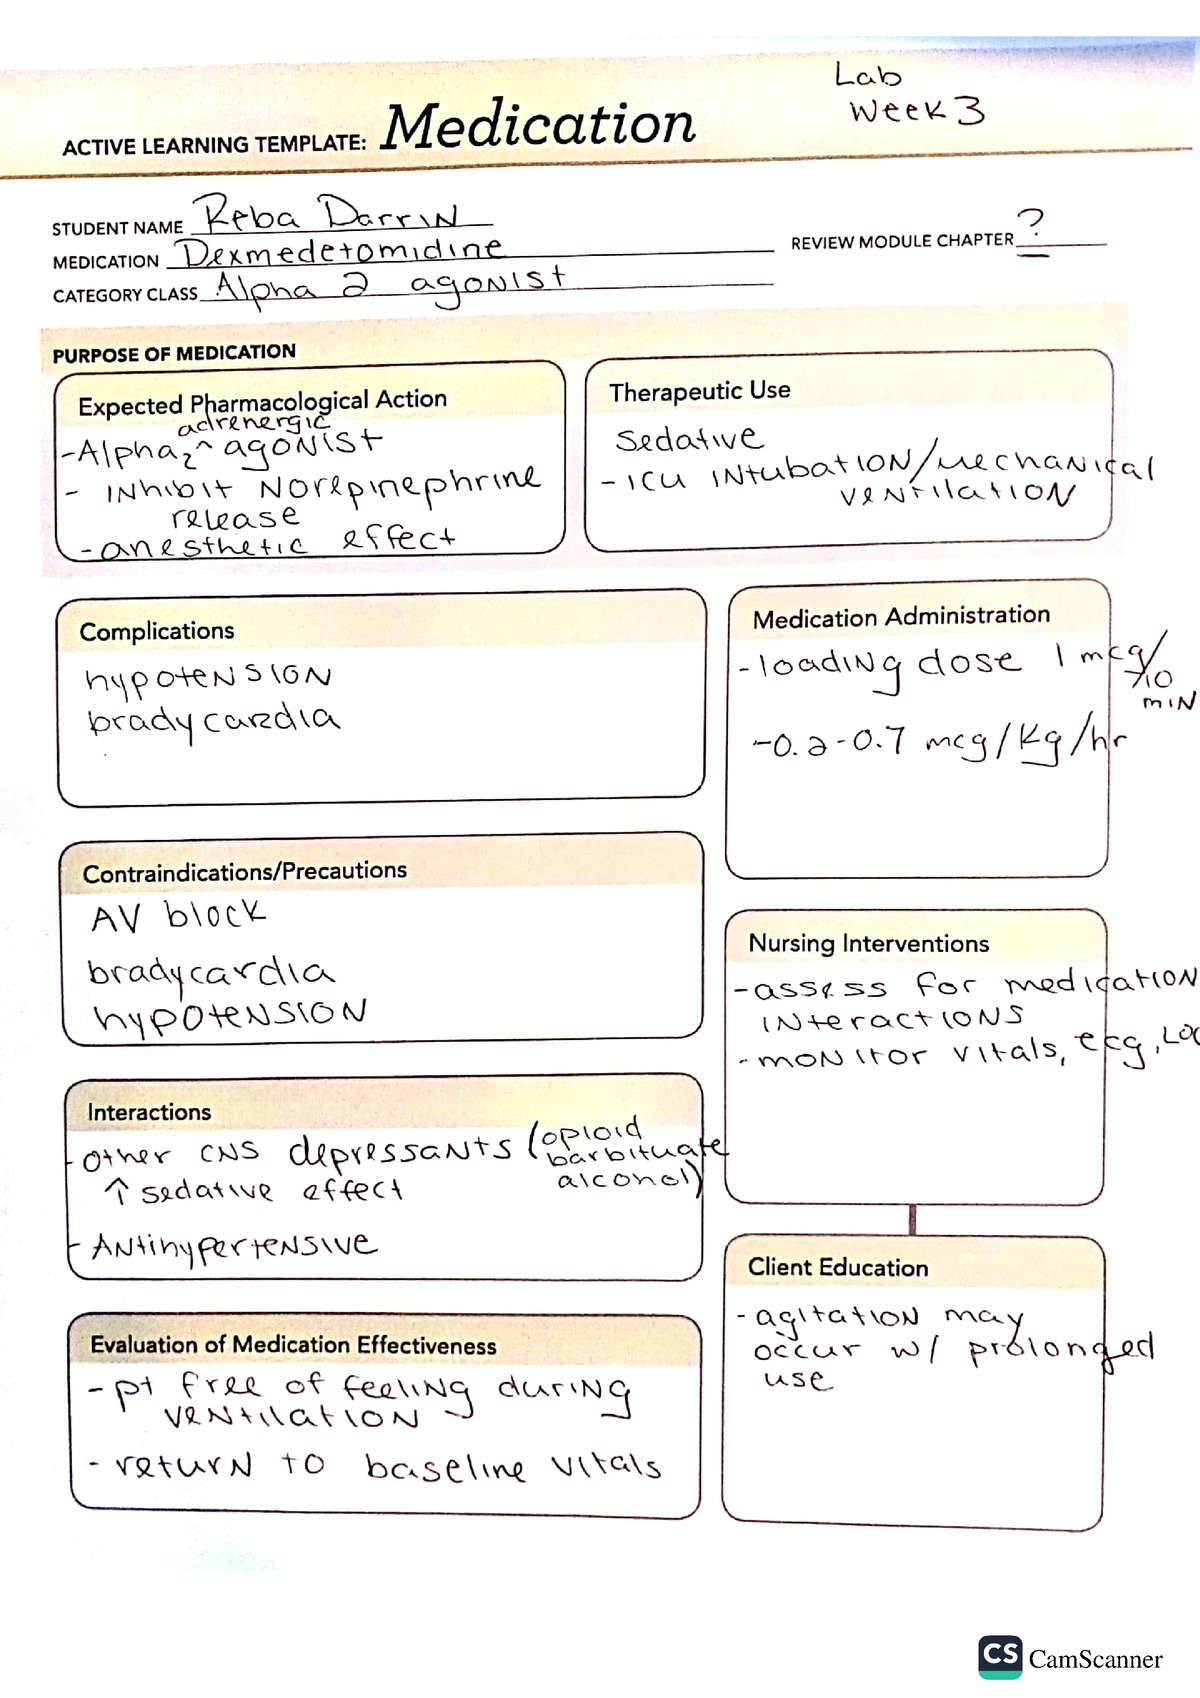 Lab
Week 3
ACTIVE LEARNING TEMPLATE: Medication
STUDENT NAME Reba Darrin
MEDICATION Dexmedetomidine
REVIEW MODULE CHAPTER ?
CATEGORY CLASS Alpha 2 agonist
PURPOSE OF MEDICATION
Expected Pharmacological Action
adrenergic
-Alpha2 ^ agonist
- inhibit Norepinephrine
release
-anesthetic effect
Therapeutic Use
Sedative
-ICU intubation/mechanical
ventilation
Complications
hypotension
bradycardia
Medication Administration
-loading dose 1 mcg/
10
min
-0.2-0.7 mcg/kg/hr
Contraindications/Precautions
AV block
bradycardia
hypotension
Nursing Interventions
-assess for medication
interactions
-monitor vitals, ekg, LOC
Interactions
-other CNS depressants (opioid
barbituate
alcohol)
↑ sedative effect
- Antihypertensive
Client Education
-agitation may
occur w/ prolonged
use
Evaluation of Medication Effectiveness
-pt free of feeling during
ventilation
-return to baseline vitals
CS CamScanner